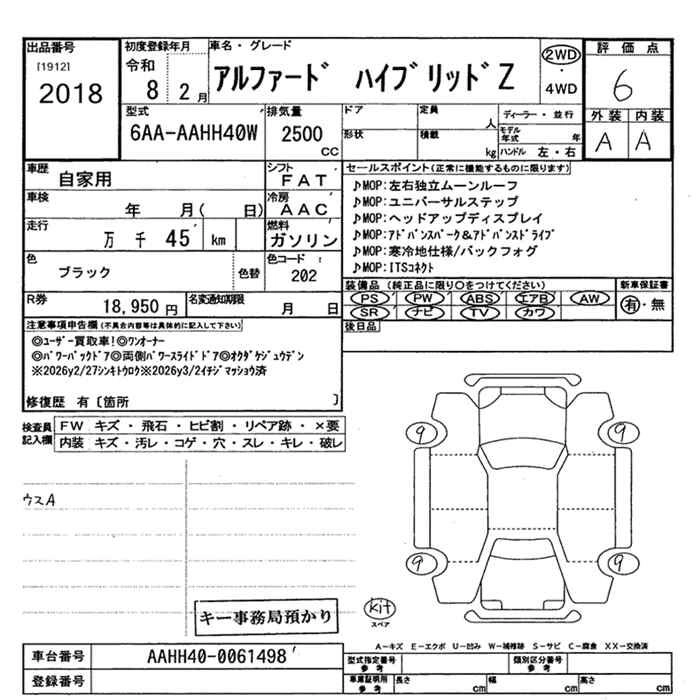 出品番号
[1912]
2018
初度登録年月
令和
8 2月
車名・グレード
アルファード ハイブリッドZ
2WD
・
4WD
評価点
6
外装 内装
A A
型式
6AA-AAHH40W
排気量
2500
CC
ドア
定員
人
形状
積載
kg
ディーラー・並行
モデル年式 年
ハンドル 左・右
車歴
自家用
シフト
FAT
車検
年 月( 日)
冷房
AAC
走行
万 千 45 km
燃料
ガソリン
色
ブラック
色替
色コード
202
R券
18,950円
名変通知期限
月 日
セールスポイント(正常に機能するものに限ります)
♪MOP:左右独立ムーンルーフ
♪MOP:ユニバーサルステップ
♪MOP:ヘッドアップディスプレイ
♪MOP:アドバンスパーク&アドバンスドライブ
♪MOP:寒冷地仕様/バックフォグ
♪MOP:ITSコネクト
装備品(純正品に限り〇をつけてください)
PS PW ABS エアB AW
SR ナビ TV カワ
新車保証書
有・無
後日品
注意事項申告欄(不具合内容等は具体的に記入して下さい)
◎ユーザー買取車!◎ワンオーナー
◎パワーバックドア◎両側パワースライドドア◎オクダケジュウデン
※2026y2/27シンキトウロク※2026y3/24イテンマッショウ済
修復歴 有〔箇所 〕
検査員記入欄
FW キズ・飛石・ヒビ割・リペア跡・×要
内装 キズ・汚レ・コゲ・穴・スレ・キレ・破レ
ウスA
キー事務局預かり
9 9
9 9
kit
スペア
A-キズ E-エクボ U-凹み W-補修跡 S-サビ C-腐食 XX-交換済
車台番号
AAHH40-0061498
登録番号
型式指定番号
参考
類別区分番号
参考
車庫証明用
参考
長さ cm
幅 cm
高さ cm